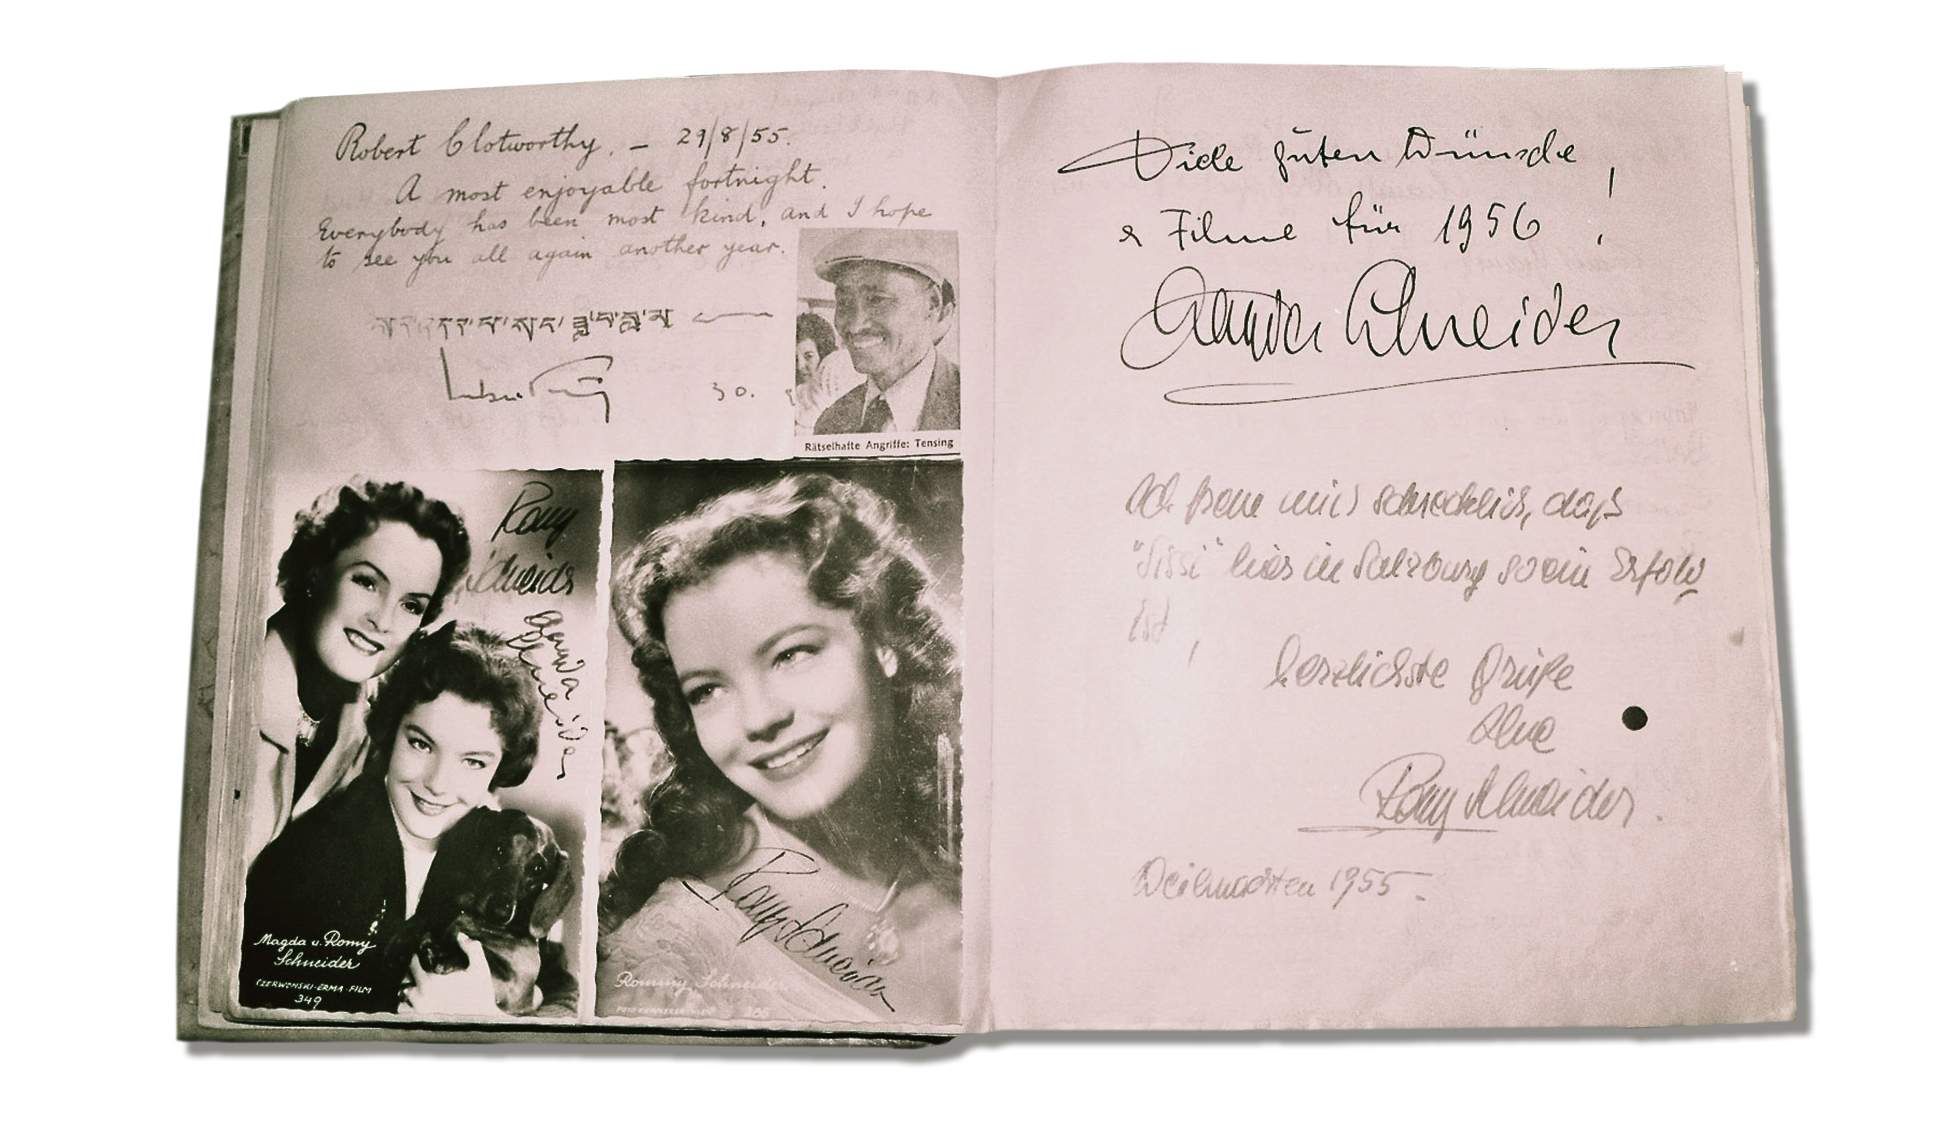 Robert Clotworthy. – 29/8/55.
A most enjoyable fortnight.
Everybody has been most kind, and I hope
to see you all again another year.
30.
Rätselhafte Angriffe: Tensing
Romy
Schneider
Magda
Schneider
Magda u. Romy
Schneider
CZERWONSKI-ERMA-FILM
349
Romy Schneider
Rommy Schneider
206
Viele guten Wünsche
& Filme für 1956!
Magda Schneider
Ich freue mich schrecklich, dass
"Sissi" hier in Salzburg so ein Erfolg
ist,
herzlichste Grüße
Ihre
Romy Schneider.
Weihnachten 1955.